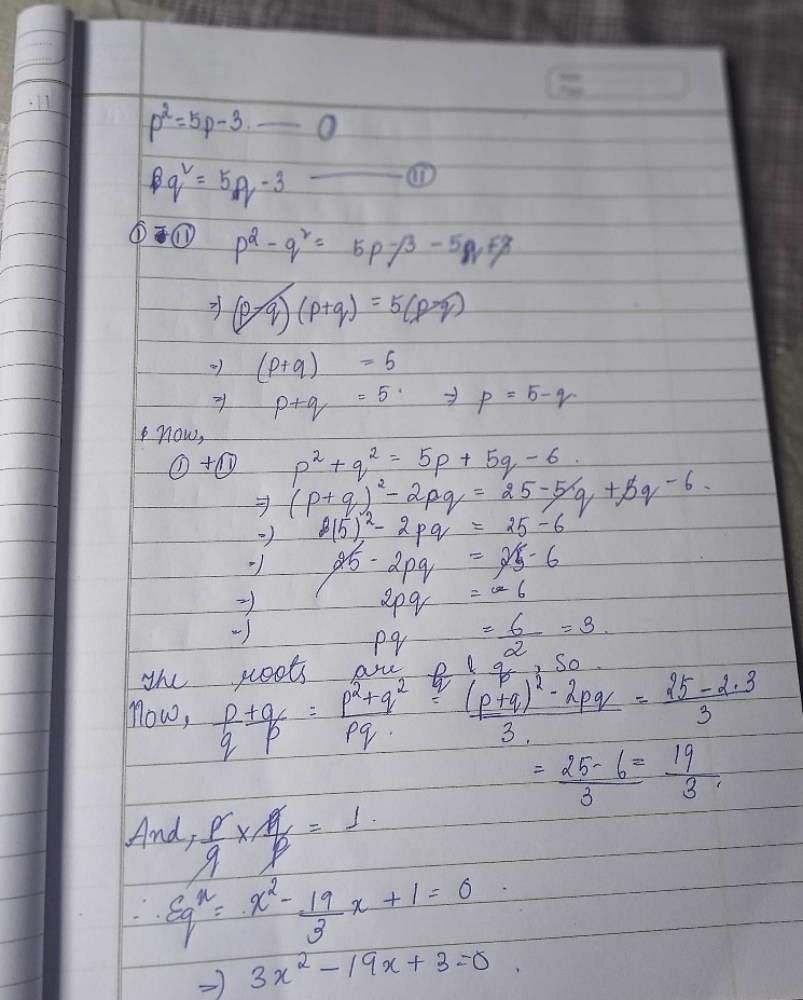 p² = 5p - 3. — (I)
q² = 5q - 3 — (II)
(I) - (II) p² - q² = 5p - 3 - 5q + 3
⇒ (p-q) (p+q) = 5(p-q)
⇒ (p+q) = 5
⇒ p+q = 5. ⇒ p = 5-q.
Now,
(I) + (II) p² + q² = 5p + 5q - 6.
⇒ (p+q)² - 2pq = 25 - 5q + 5q - 6.
⇒ (5)² - 2pq = 25 - 6
⇒ 25 - 2pq = 25 - 6
⇒ 2pq = 6
⇒ pq = 6/2 = 3.
The roots are p/q & q/p, so.
Now, p/q + q/p = (p² + q²)/pq. = ((p+q)² - 2pq)/3. = (25 - 2·3)/3
= (25 - 6)/3 = 19/3.
And, p/q × q/p = 1.
∴ Eqⁿ = x² - 19/3 x + 1 = 0.
⇒ 3x² - 19x + 3 = 0.